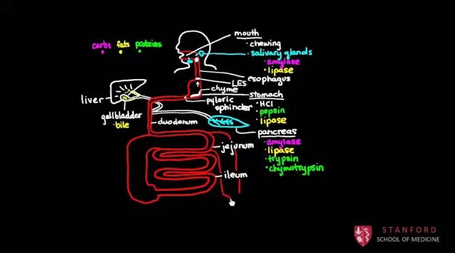 mouth
· chewing
· salivary glands
· amylase
· lipase
· carbs · fats · proteins
esophagus
LES
chyme
stomach
· HCl
· pepsin
· lipase
pyloric
sphincter
liver
gallbladder
· bile
duodenum
pancreas
· amylase
· lipase
· trypsin
· chymotrypsin
jejunum
ileum
STANFORD
SCHOOL OF MEDICINE